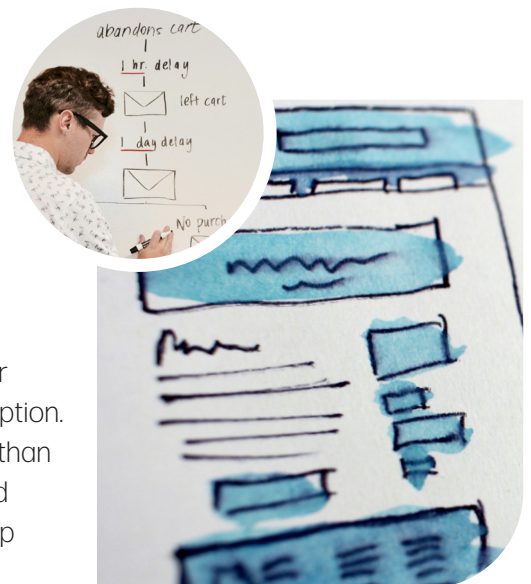 abandons cart
1 hr. delay
left cart
1 day delay
No purch
r
ption.
than
d
p